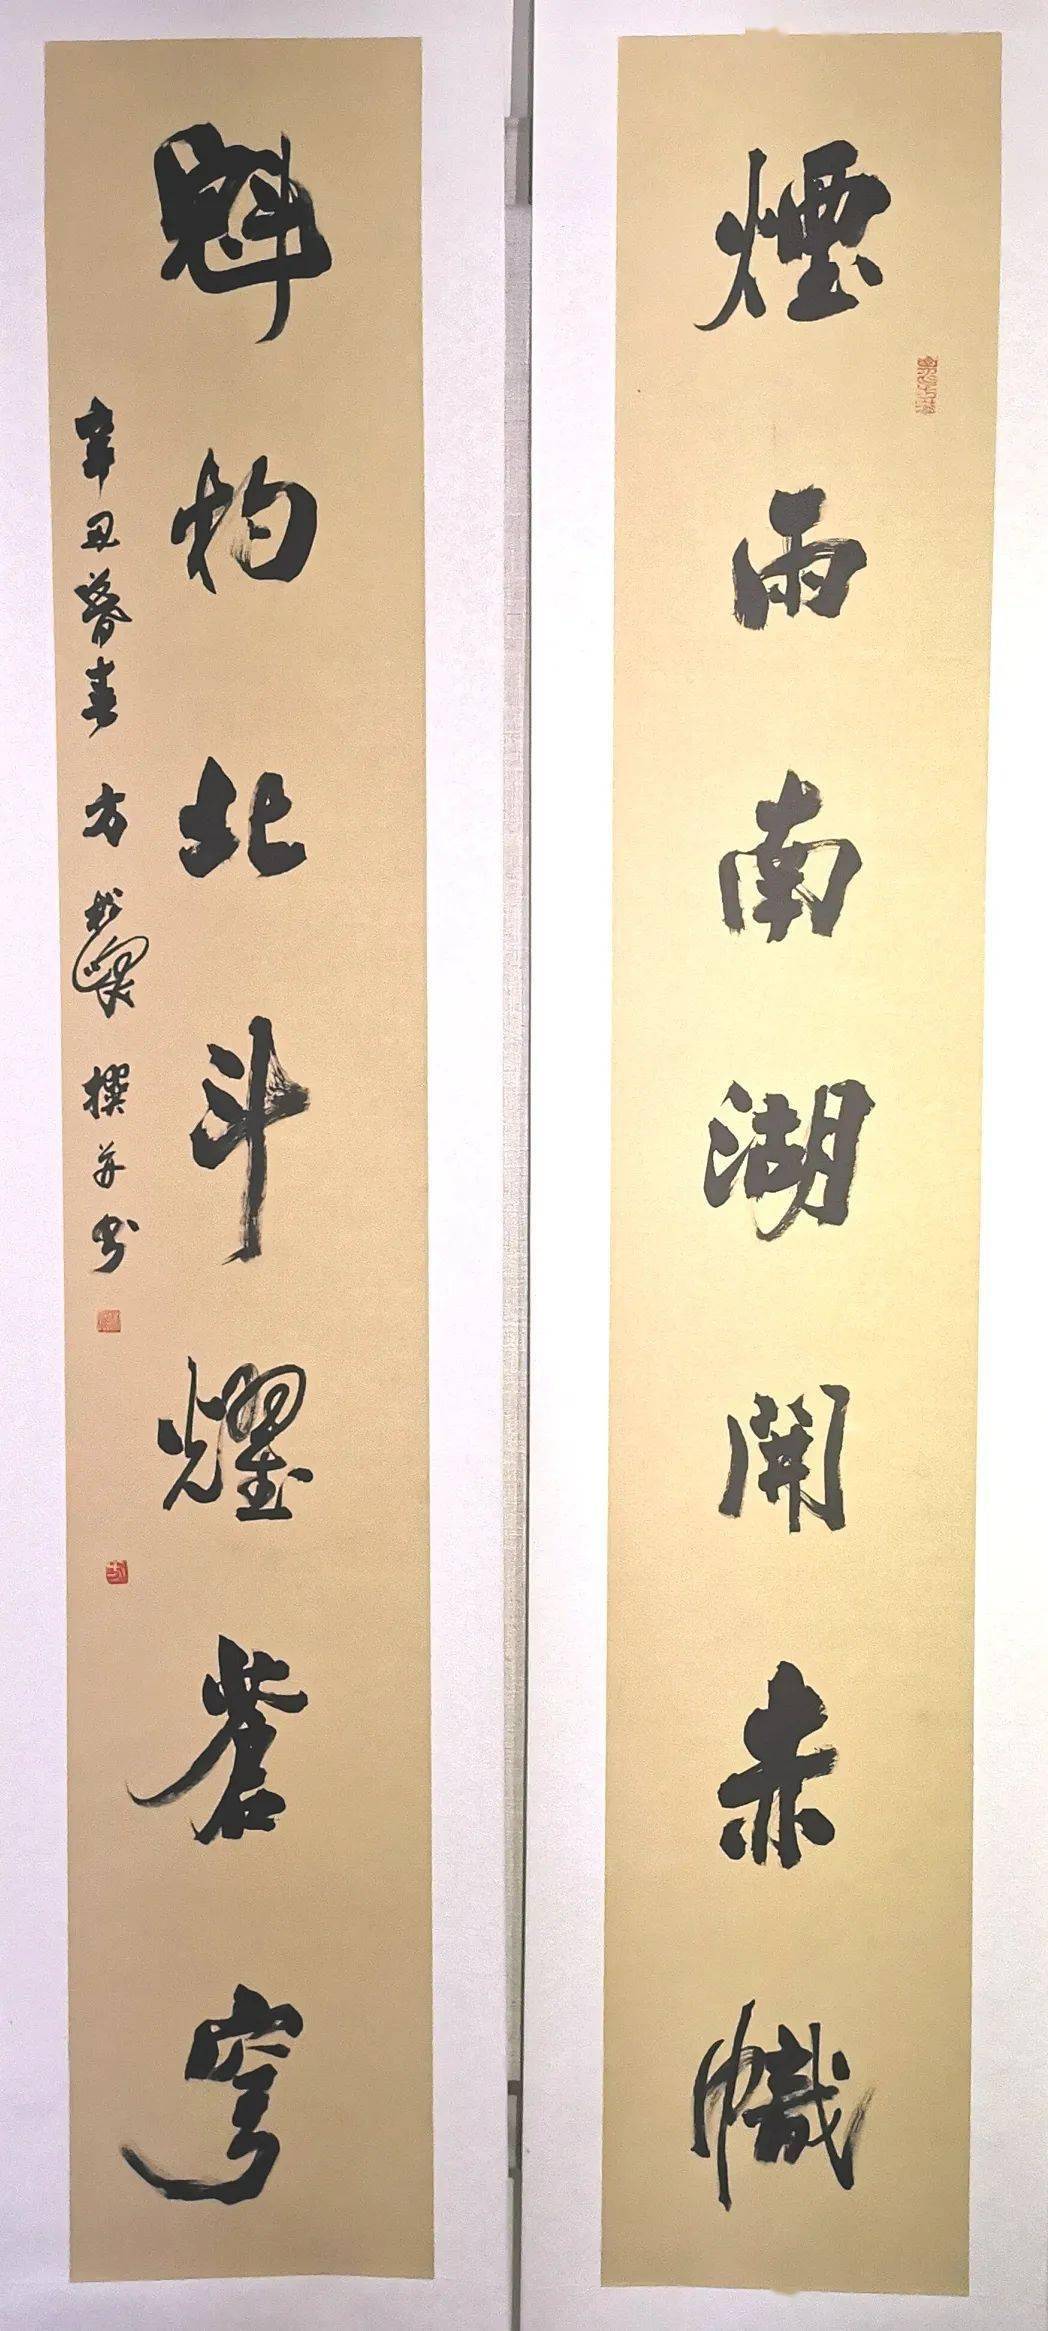 煙雨南湖開赤幟
魁杓北斗耀蒼穹
辛丑暮春 方 撰并书